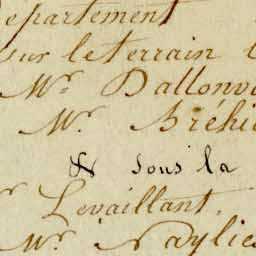 epartement
sur le terrain
Mr. Dallonv
Mr. Bréhi
& sous la
Levaillant.
Mr. Naylie